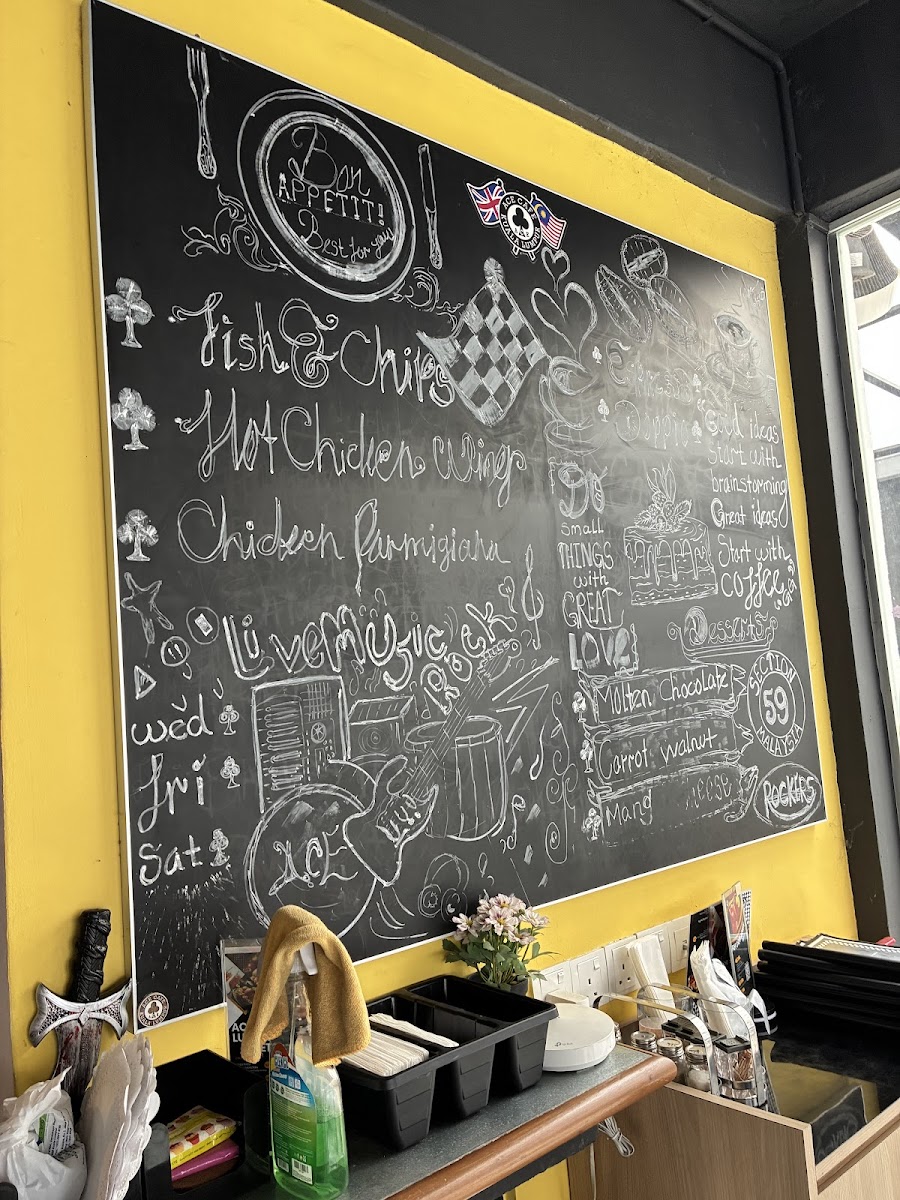 Bon
APPETIT!
Best for you
ACE CAFE
KUALA LUMPUR
Fish & Chips
Hot Chicken Wings
Chicken Parmigiana
Live Music
Rock
Wed
Fri
Sat
ACE
Do
small
THINGS
with
GREAT
LOVE
Good ideas
start with
brainstorming
Great ideas
Start with
coffee
Desserts
Molten Chocolate
Carrot walnut
Mang
SECTION
59
MALAYSIA
ROCKERS